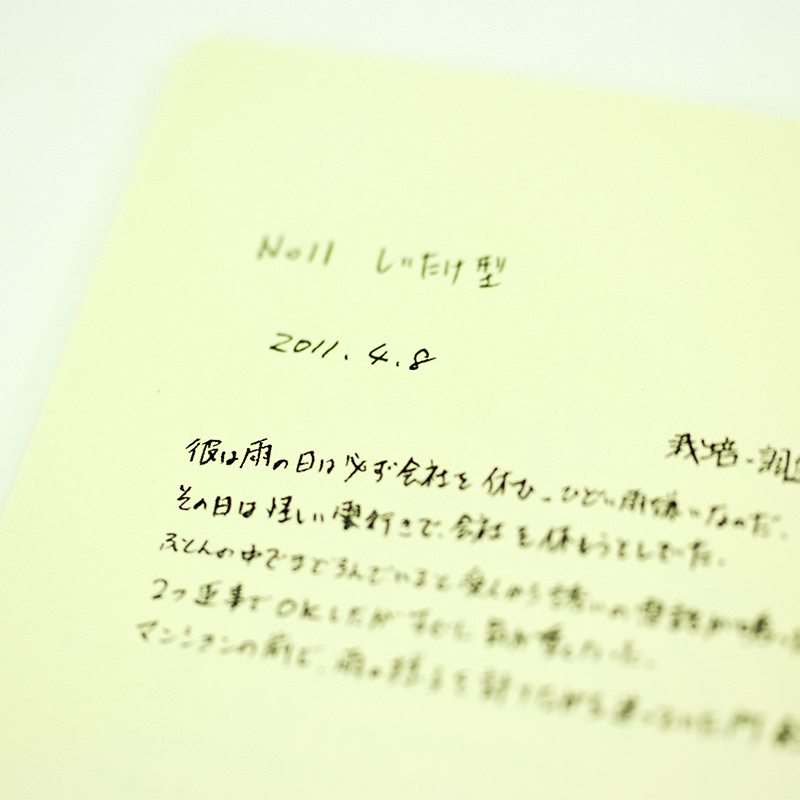 No11 しいたけ型
2011.4.8
栽培・調
彼は雨の日は必ず会社を休む。ひどい雨嫌いなのだ。
その日は怪しい雲行きで、会社を休もうとしていた。
ふとんの中でまどろんでいると愛人から誘いの電話が鳴り
2つ返事でOKしたが すぐに気が重たい
マンションの前で、雨の様子を